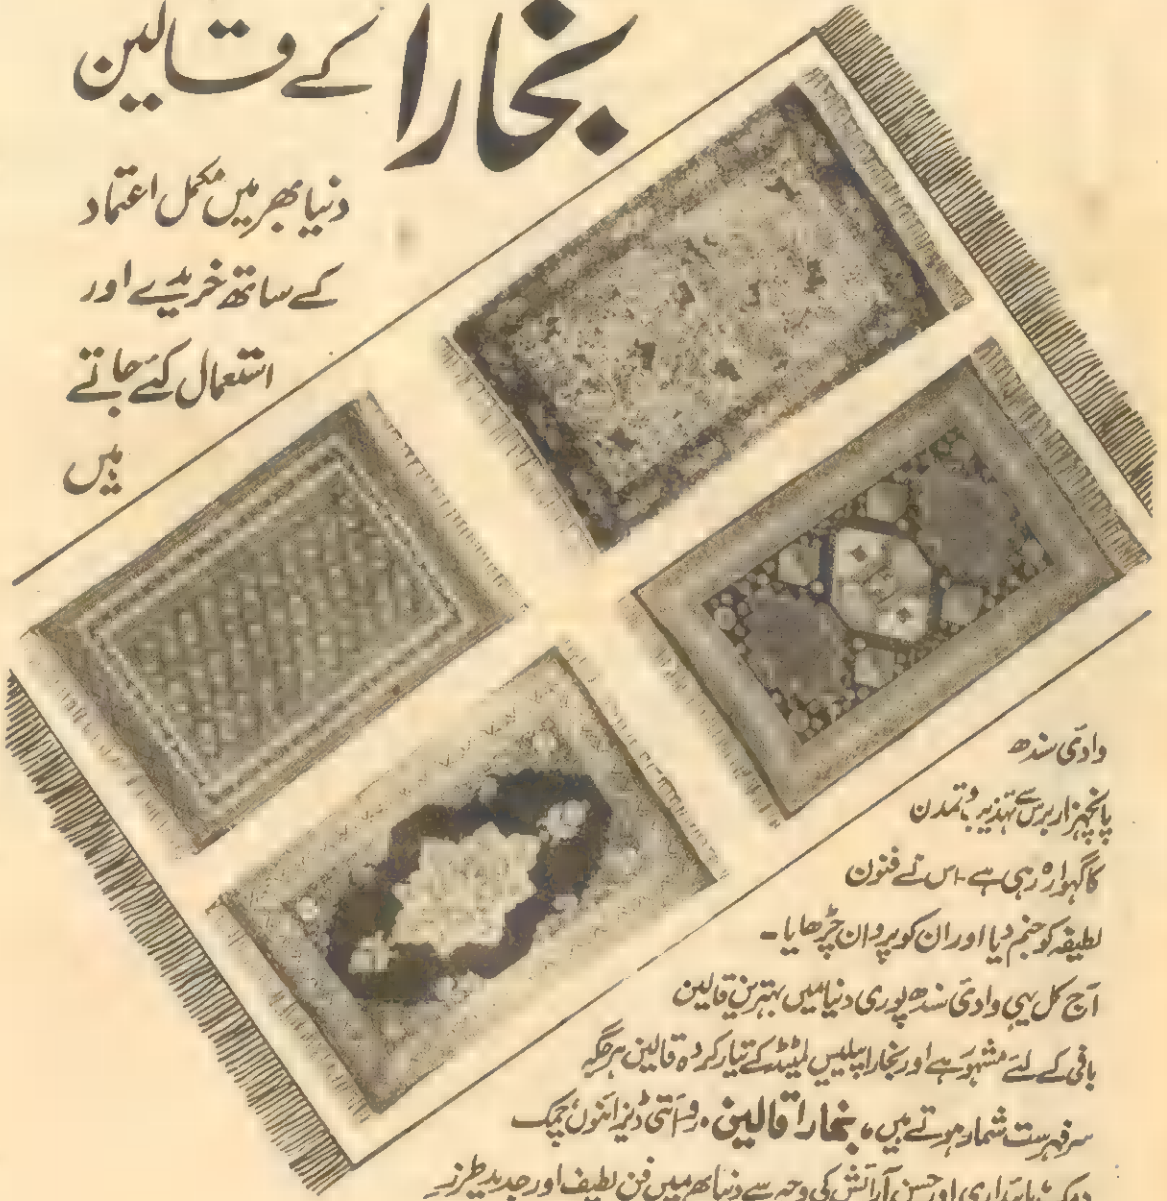 بخارا کے قالین
دنیا بھر میں مکمل اعتماد
کے ساتھ خریدے اور
استعمال کئے جاتے
ہیں
وادی سندھ
پانچہزار برس سے تہذیب و تمدن
کا گہوارہ رہی ہے۔ اس نے فنون
لطیفہ کو جنم دیا اور ان کو پروان چڑھایا۔
آج کل یہی وادی سندھ پوری دنیا میں بہترین قالین
بافی کے لئے مشہور ہے اور بخارا پیلیس لمیٹڈ کے تیار کردہ قالین ہر جگہ
سرفہرست شمار ہوتے ہیں، بخارا قالین، روائتی ڈیزائنوں، چمک
دمک، پائیداری اور حسن آرائش کی وجہ سے دنیا بھر میں فن لطیف اور جدید طرز